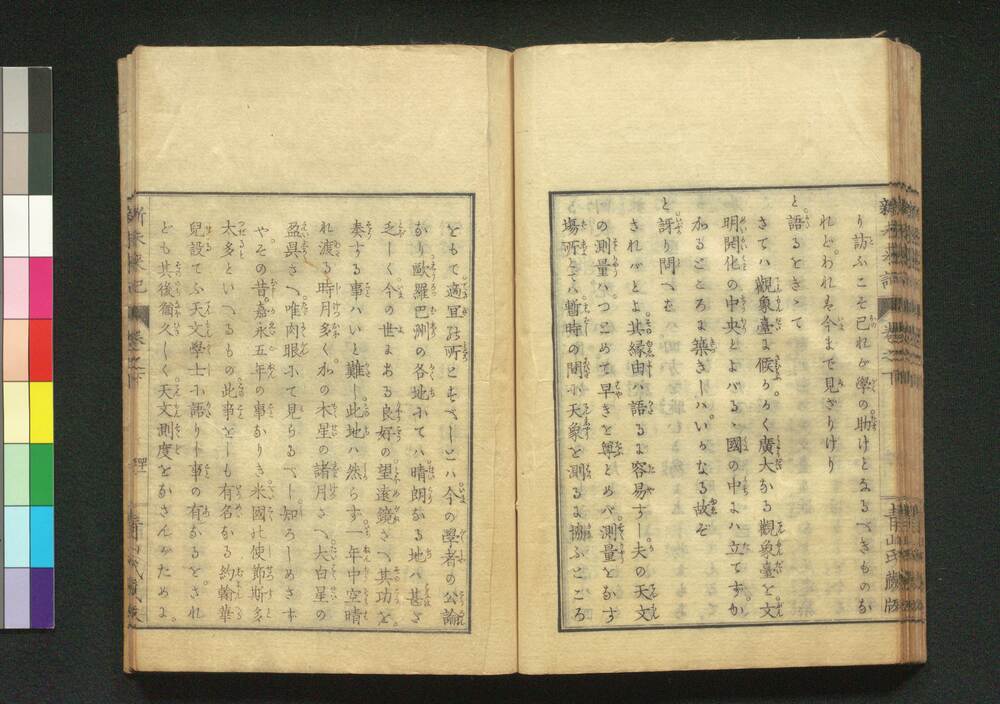 り訪ふこそ己れが學の助けとなるべきものな
れど、われハ今まで見ざりけり
と語るをきゝて
さてハ觀象臺に候か、かく廣大なる觀象臺を文
明開化の中央とよバるゝ國の中にハ立てずか
かるところに築きしハいかなる故ぞ
と訝り問へバ
されバとよ其縁由ハ語るに容易すし夫の天文
の測量ハつとめて早きを専とめバ測量をなす
塲所とて暫時の間に天象を測るに協ふところ
をもて適宜の所とすべしとハ今の學者の公論
なり歐羅巴洲の各地にてハ晴朗なる地ハ甚だ
乏しく今の世にある良好の望遠鏡さへ其功を
奏する事ハいと難し此地ハ然らず一年中空晴
れ渡る時月多くかの木星の諸月さへ大白星の
盈昃さへ唯肉眼にて見らるべし知ろしめさず
やその昔嘉永五年の事なりき米國の使節斯多
太多といへるもの此事をしも有名なる約翰華
兒設てふ天文學士に語りし事の有なるをされ
ども其後彌久しく天文測度をなさんがために
新未來記 卷之下
青山氏藏版